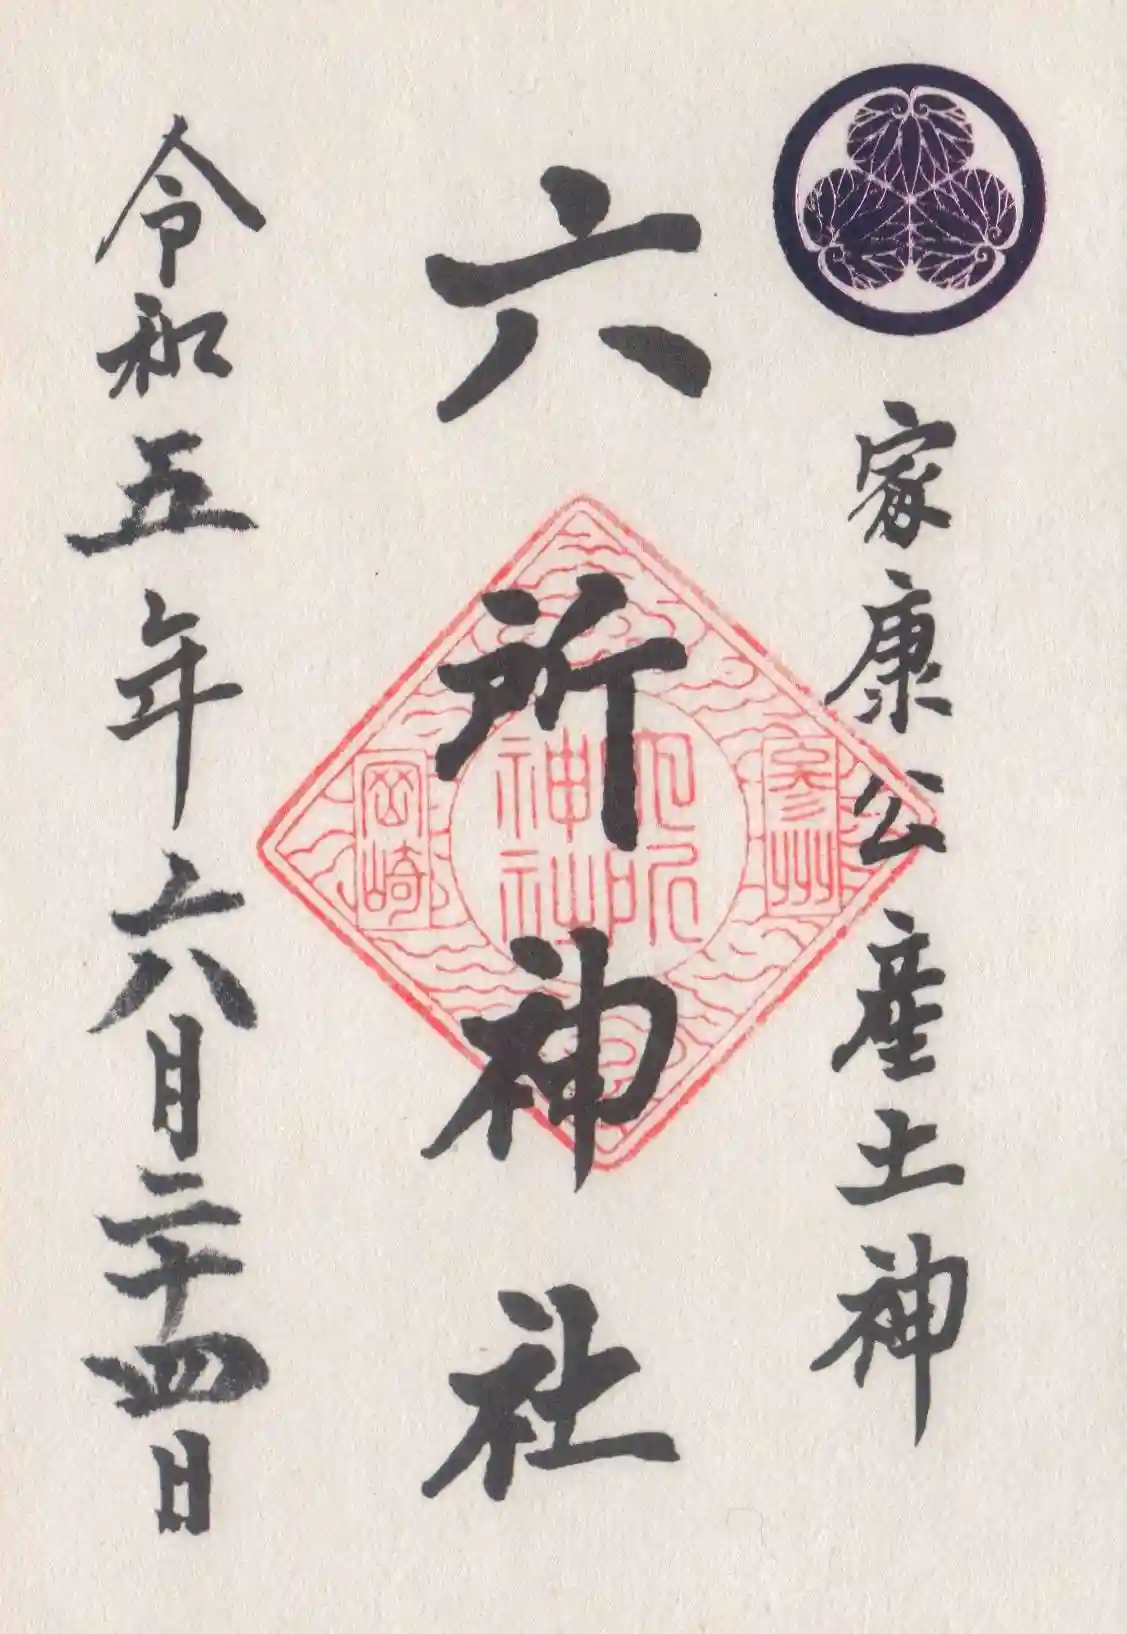 家康公産土神
六所神社
参州
六所神社
岡崎
令和五年六月二十四日